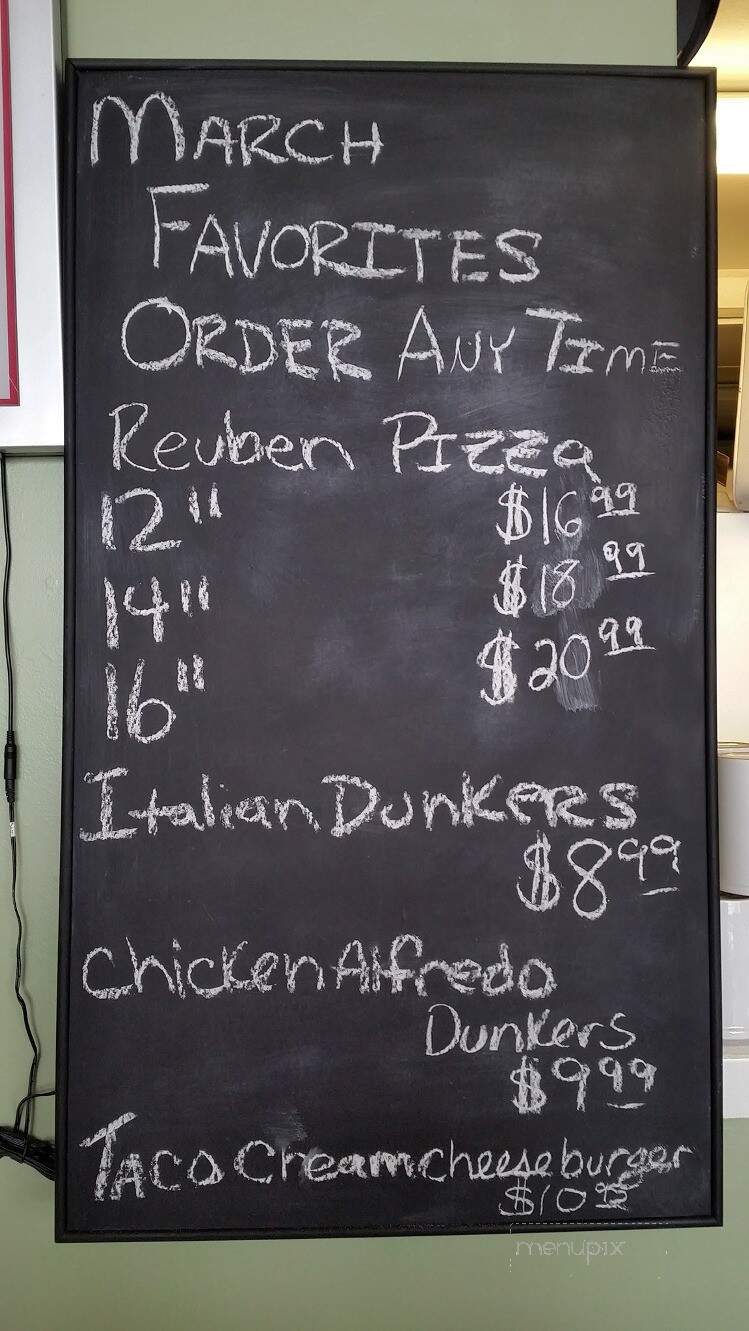 MARCH
FAVORITES
ORDER ANY TIME
Reuben PIZZa
12" $16 99
14" $18 99
16" $20 99
Italian DunkeRS
$8 99
Chicken Alfredo
Dunkers
$9 99
TACo Creamcheeseburger
$10
menupix